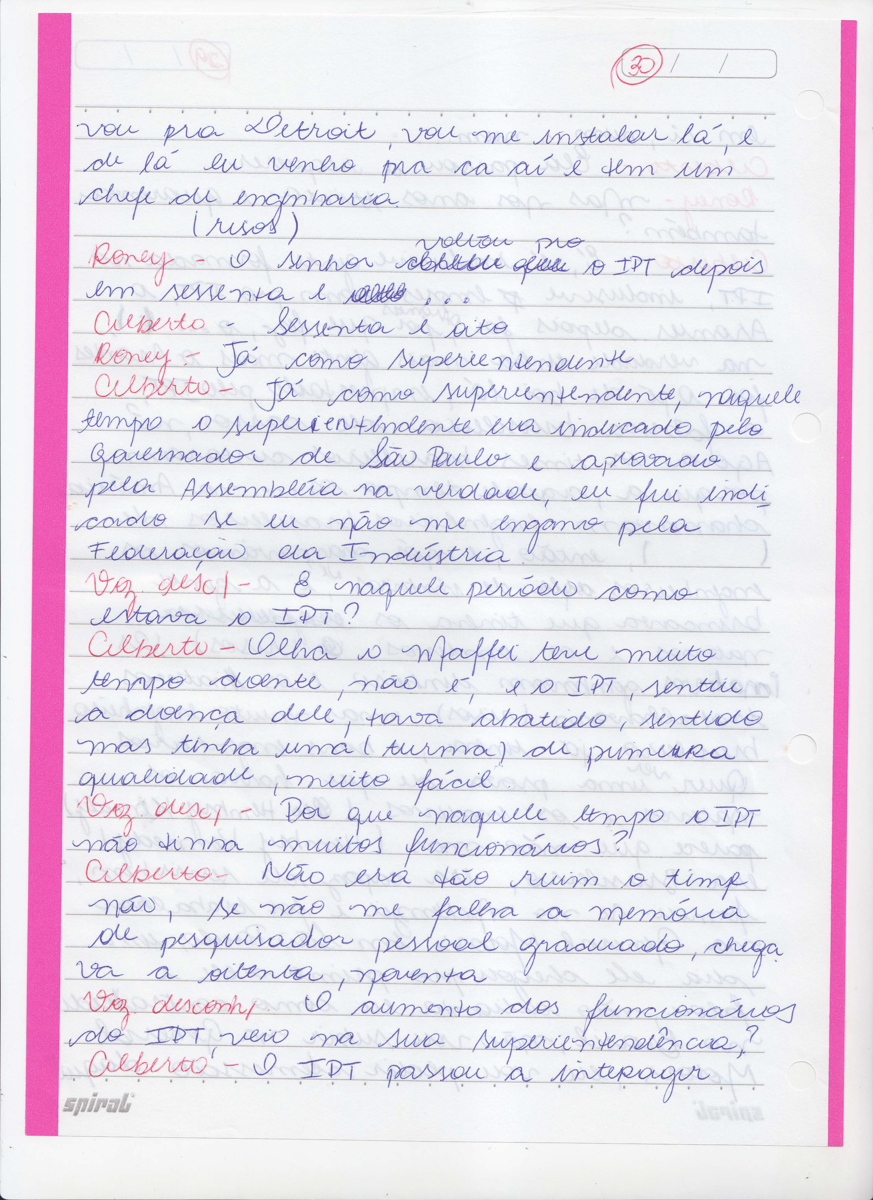 30 / /
vou pra Detroit, vou me instalar lá, e
de lá eu venho pra ca aí e tem um
chefe de engnharia.
(risos)
voltou pro
Roney - O senhor o IPT depois
em sessenta e ...
Gilberto - Sessenta e oito
Roney - Já como superientendente
Gilberto - Já como superientendente, naquele
tempo o superientendente era indicado pelo
Governador de São Paulo e aprovado
pela Assembléia na verdade, eu fui indi
cado se eu não me engano pela
Federação da Indústria.
Voz desc/ - E naquele período como
estava o IPT?
Gilberto - Olha o Maffei teve muito
tempo doente, não é, e o IPT, sentiu
a doença dele, tava abatido, sentido
mas tinha uma (turma) de primeira
qualidade, muito fácil.
Voz desc/ - Por que naquele tempo o IPT
não tinha muitos funcionários?
Gilberto - Não era tão ruim o timp
não, se não me falha a memória
de pesquisador pessoal graduado, chega
va a oitenta, noventa
Voz desconh/ O aumento dos funcionários
do IPT, veio na sua superientendência?
Gilberto - O IPT passou a interagir
spiral